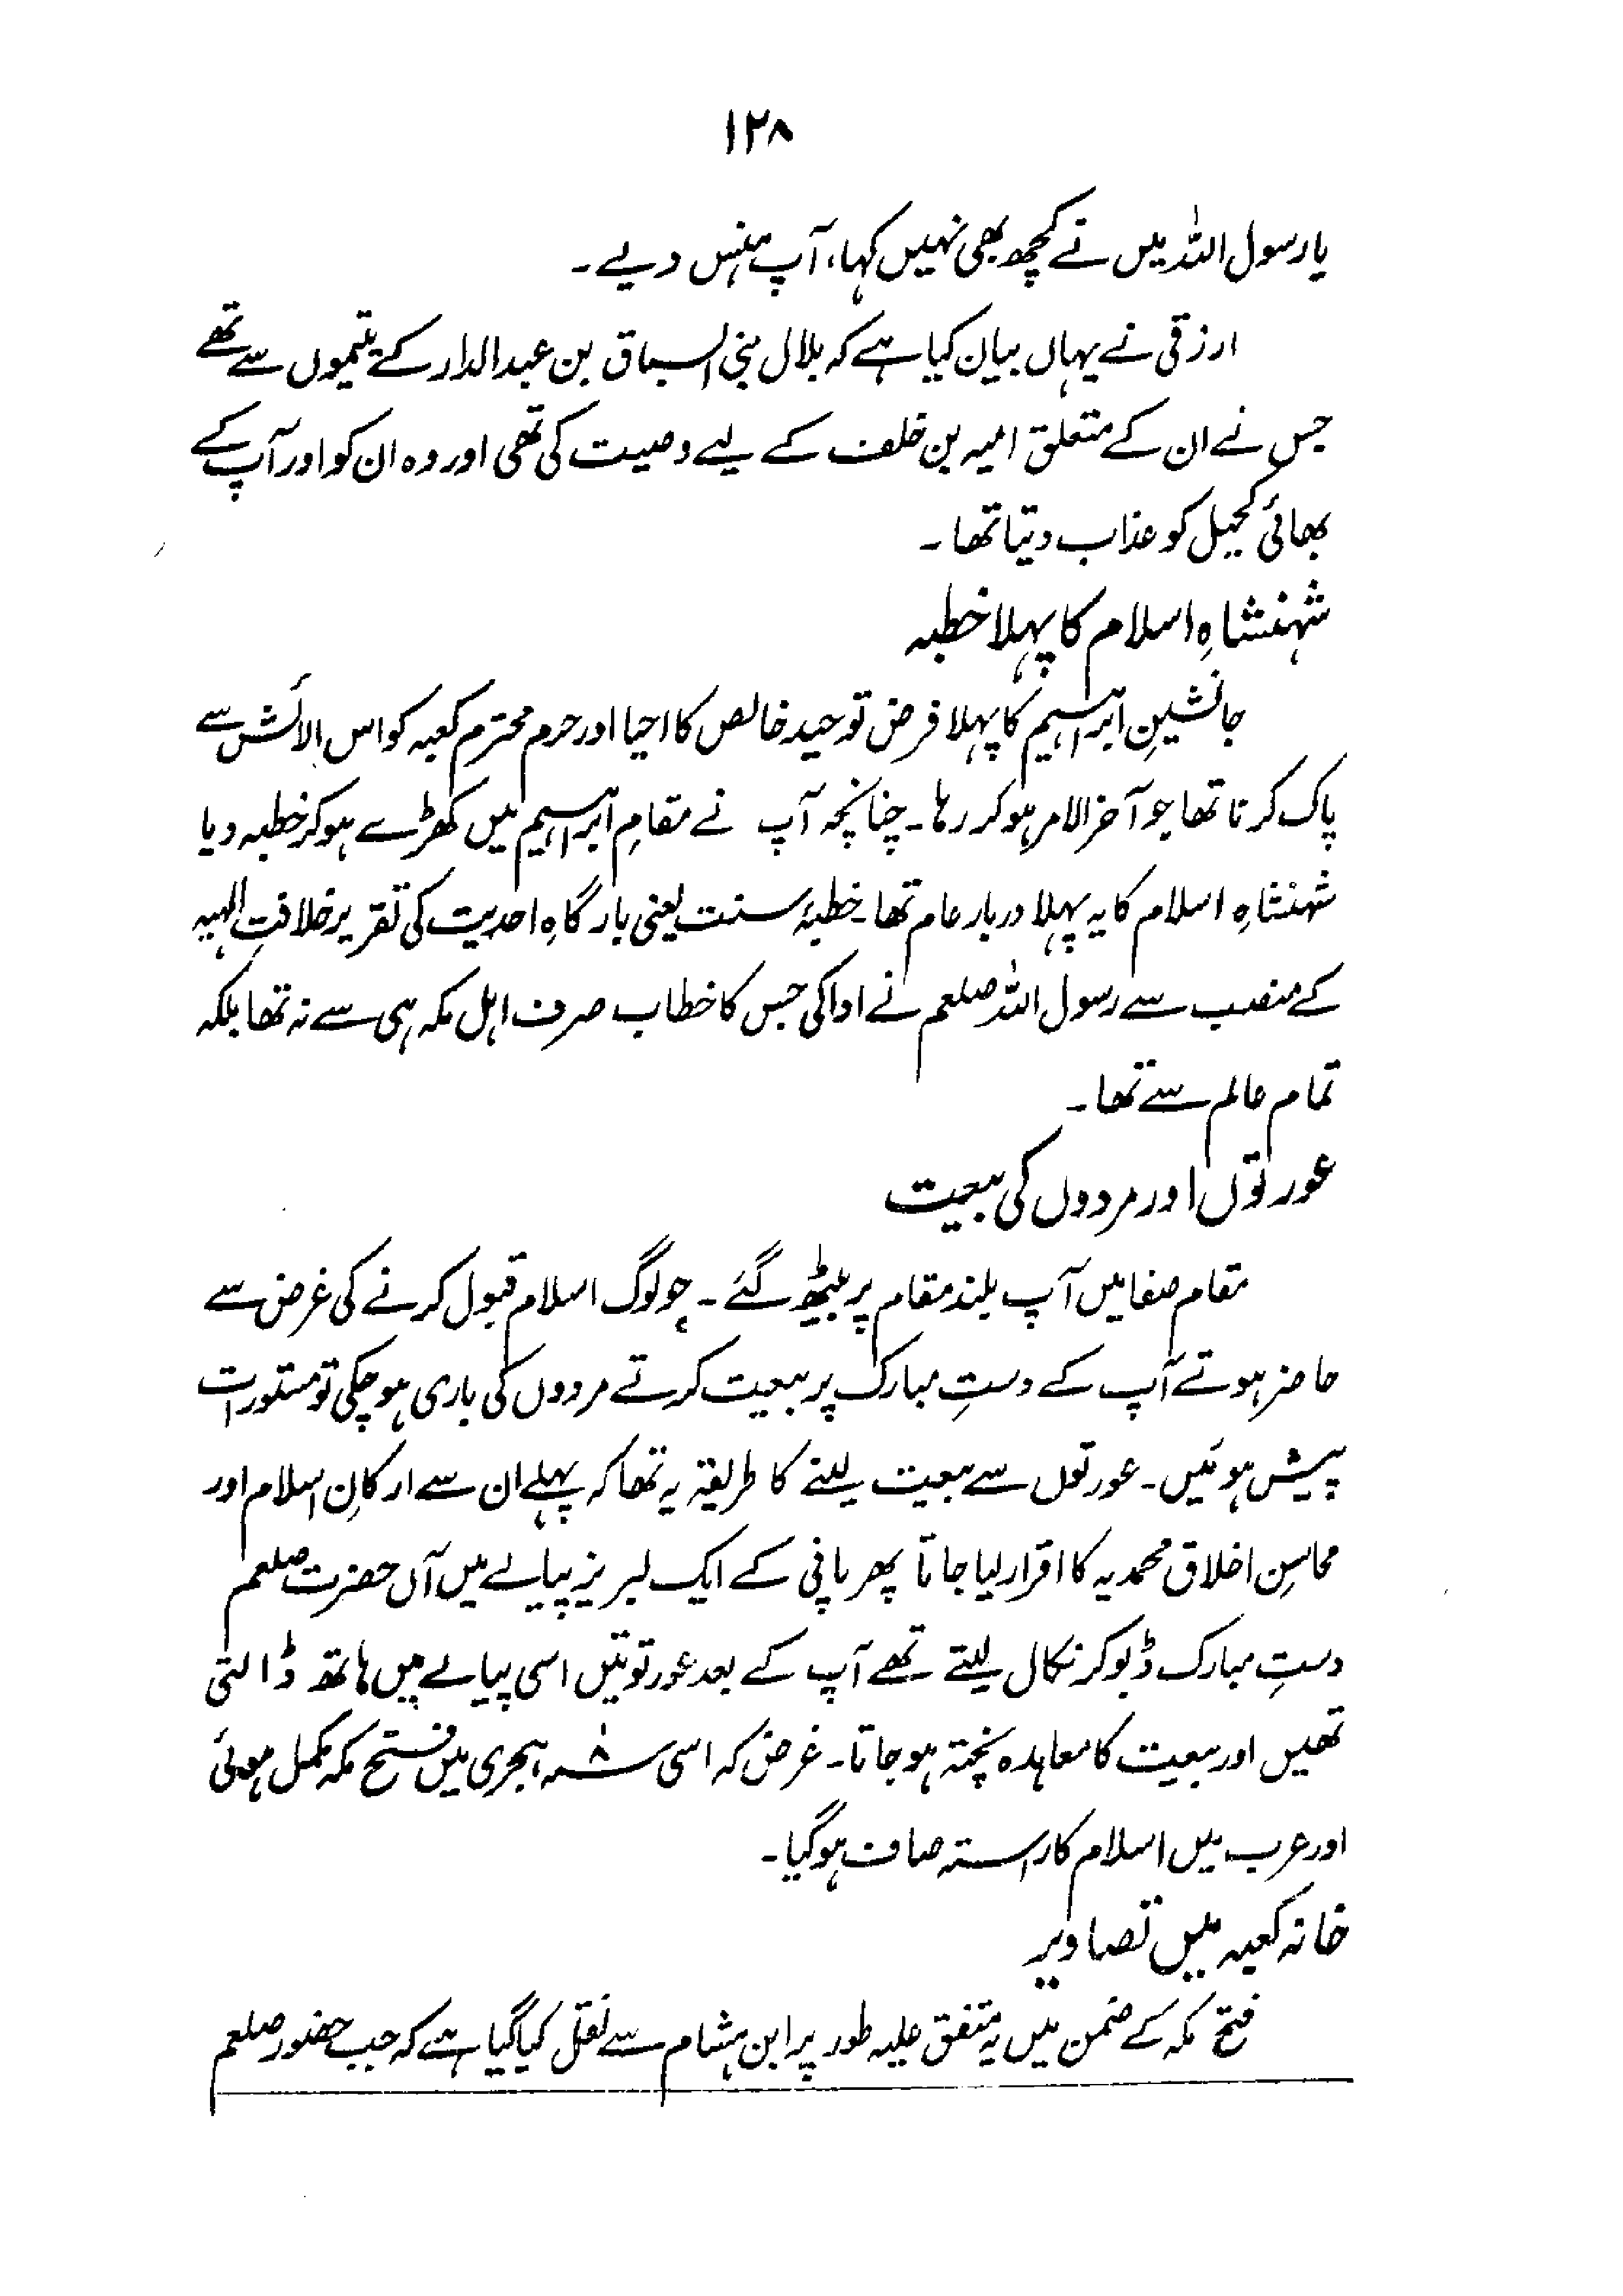 ۱۲۸
یا رسول اللہ میں نے کچھ بھی نہیں کہا، آپ ہنس دیے۔
ارزقی نے یہاں بیان کیا ہے کہ بلال بنی السباق بن عبدالدار کے یتیموں سے تھے
جس نے ان کے متعلق امیہ بن خلف کے لیے وصیت کی تھی اور وہ ان کو اور آپ کے
بھائی کحیل کو عذاب دیتا تھا۔
شہنشاہِ اسلام کا پہلا خطبہ
جانشینِ ابراہیم کا پہلا فرض توحید خالص کا احیا اور حرم محترم کعبہ کو اس الائش سے
پاک کرنا تھا جو آخر الامر ہو کر رہا۔ چنانچہ آپ نے مقامِ ابراہیم میں کھڑے ہو کر خطبہ دیا
شہنشاہِ اسلام کا یہ پہلا دربار عام تھا۔ خطبۂ سنت یعنی بارگاہِ احدیت کی تقریر خلافتِ الٰہیہ
کے منصب سے رسول اللہ صلعم نے ادا کی جس کا خطاب صرف اہل مکہ ہی سے نہ تھا بلکہ
تمام عالم سے تھا۔
عورتوں اور مردوں کی بیعیت
مقام صفا میں آپ بلند مقام پر بیٹھ گئے۔ جو لوگ اسلام قبول کرنے کی غرض سے
حاضر ہوتے آپ کے دستِ مبارک پر بیعیت کرتے مردوں کی باری ہو چکی تو مستورات
پیش ہوئیں۔ عورتوں سے بیعیت لینے کا طریقہ یہ تھا کہ پہلے ان سے ارکانِ اسلام اور
محاسِن اخلاق محمدیہ کا اقرار لیا جاتا پھر پانی کے ایک لبریز پیالے میں آں حضرت صلعم
دستِ مبارک ڈبو کر نکال لیتے تھے آپ کے بعد عورتویں اسی پیالے میں ہاتھ ڈالتی
تھیں اور بیعیت کا معاہدہ پختہ ہو جاتا۔ غرض کہ اسی ۸ سنہ ہجری میں فتح مکہ مکمل ہوئی
اور عرب میں اسلام کا راستہ صاف ہو گیا۔
خانہ کعبہ میں تصاویر
فتح مکہ کے ضمن میں یہ متفق علیہ طور پر ابن ہشام سے نقل کیا گیا ہے کہ جب حضور صلعم